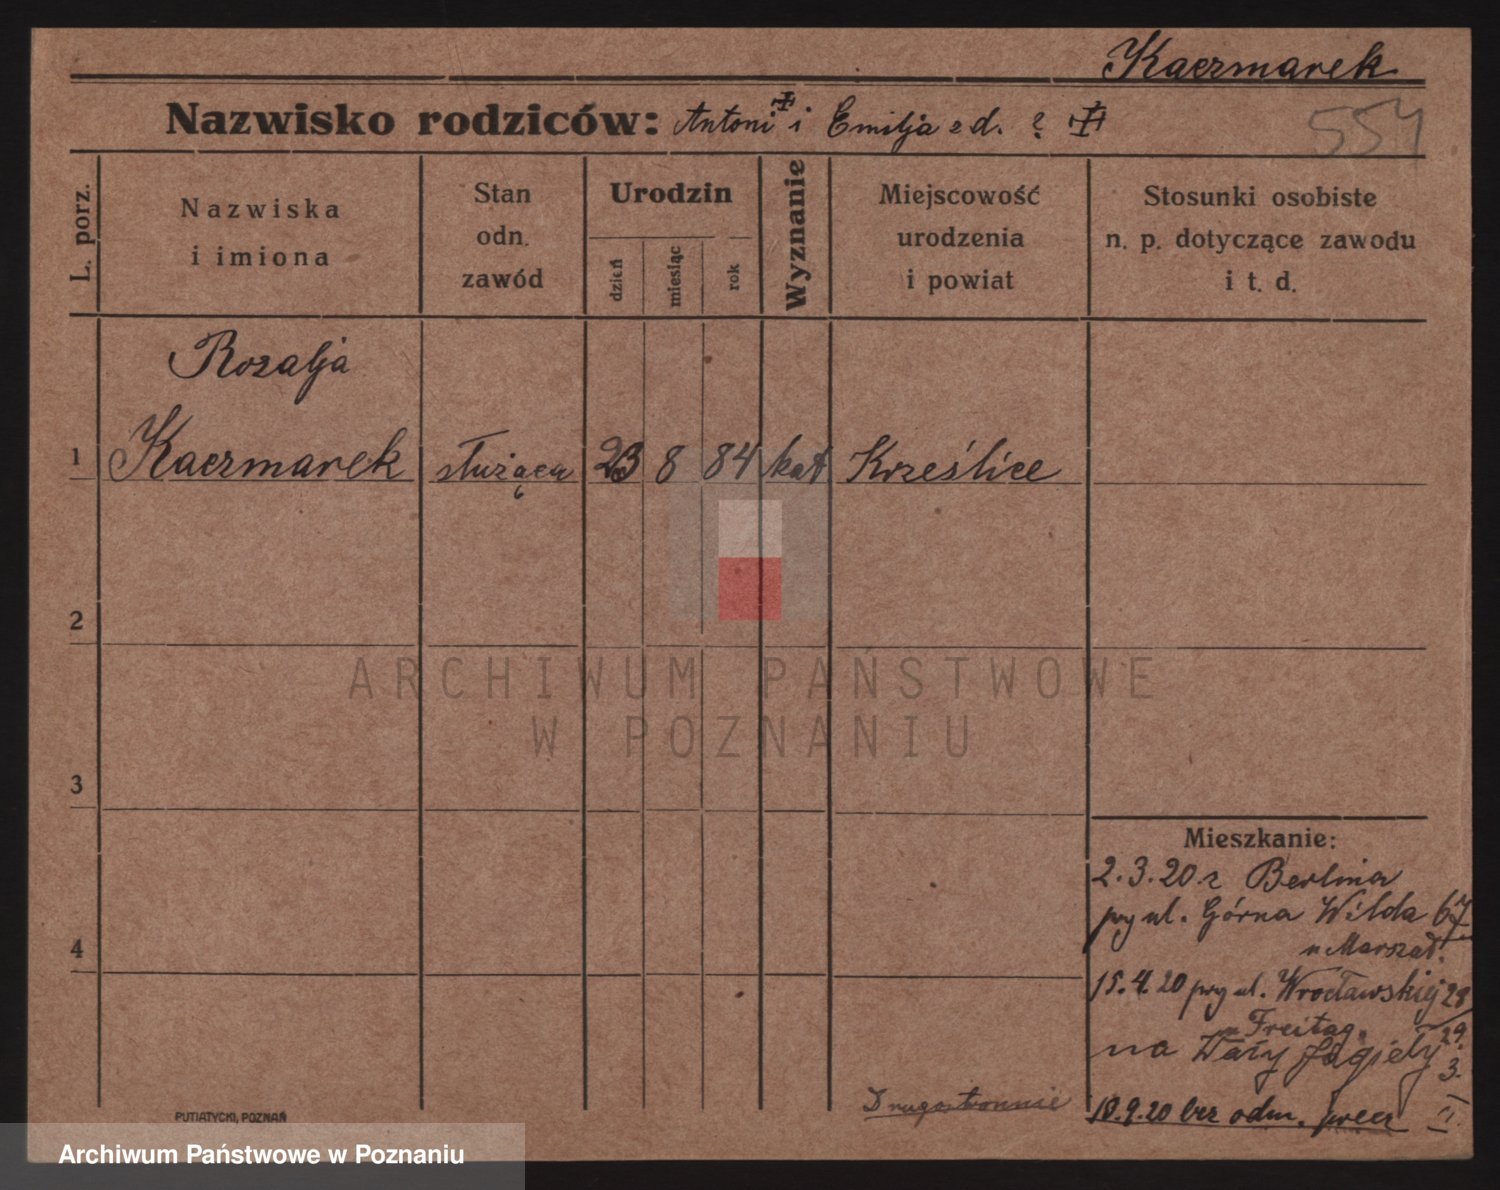 Kaczmarek
Nazwisko rodziców: Antoni ‡ i Emilja z d. ? ‡
554
L. porz.
Nazwiska
i imiona
Stan
odn.
zawód
Urodzin
dzień
miesiąc
rok
Wyznanie
Miejscowość
urodzenia
i powiat
Stosunki osobiste
n. p. dotyczące zawodu
i t. d.
Rozalja
1 Kaczmarek służąca 23 8 84 kat Krześlice
2
ARCHIWUM PAŃSTWOWE
W POZNANIU
3
Mieszkanie:
2.3.20 z Berlina
przy ul. Górna Wilda 67
u Marszał.
4
15.4.20 przy ul. Wrocławskiej 28
u Freitag.
na Wały Jagiełły 29.
3.
Drugostronnie
10.9.20 bez odm. precz II
PUTIATYCKI, POZNAŃ
Archiwum Państwowe w Poznaniu